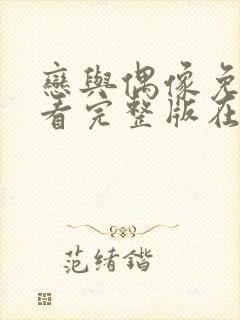 戀與偶像免
看完整版在
范绪鍇